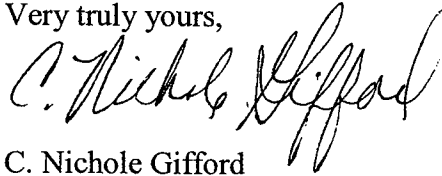 Very truly yours,
C. Nichole Gifford
C. Nichole Gifford